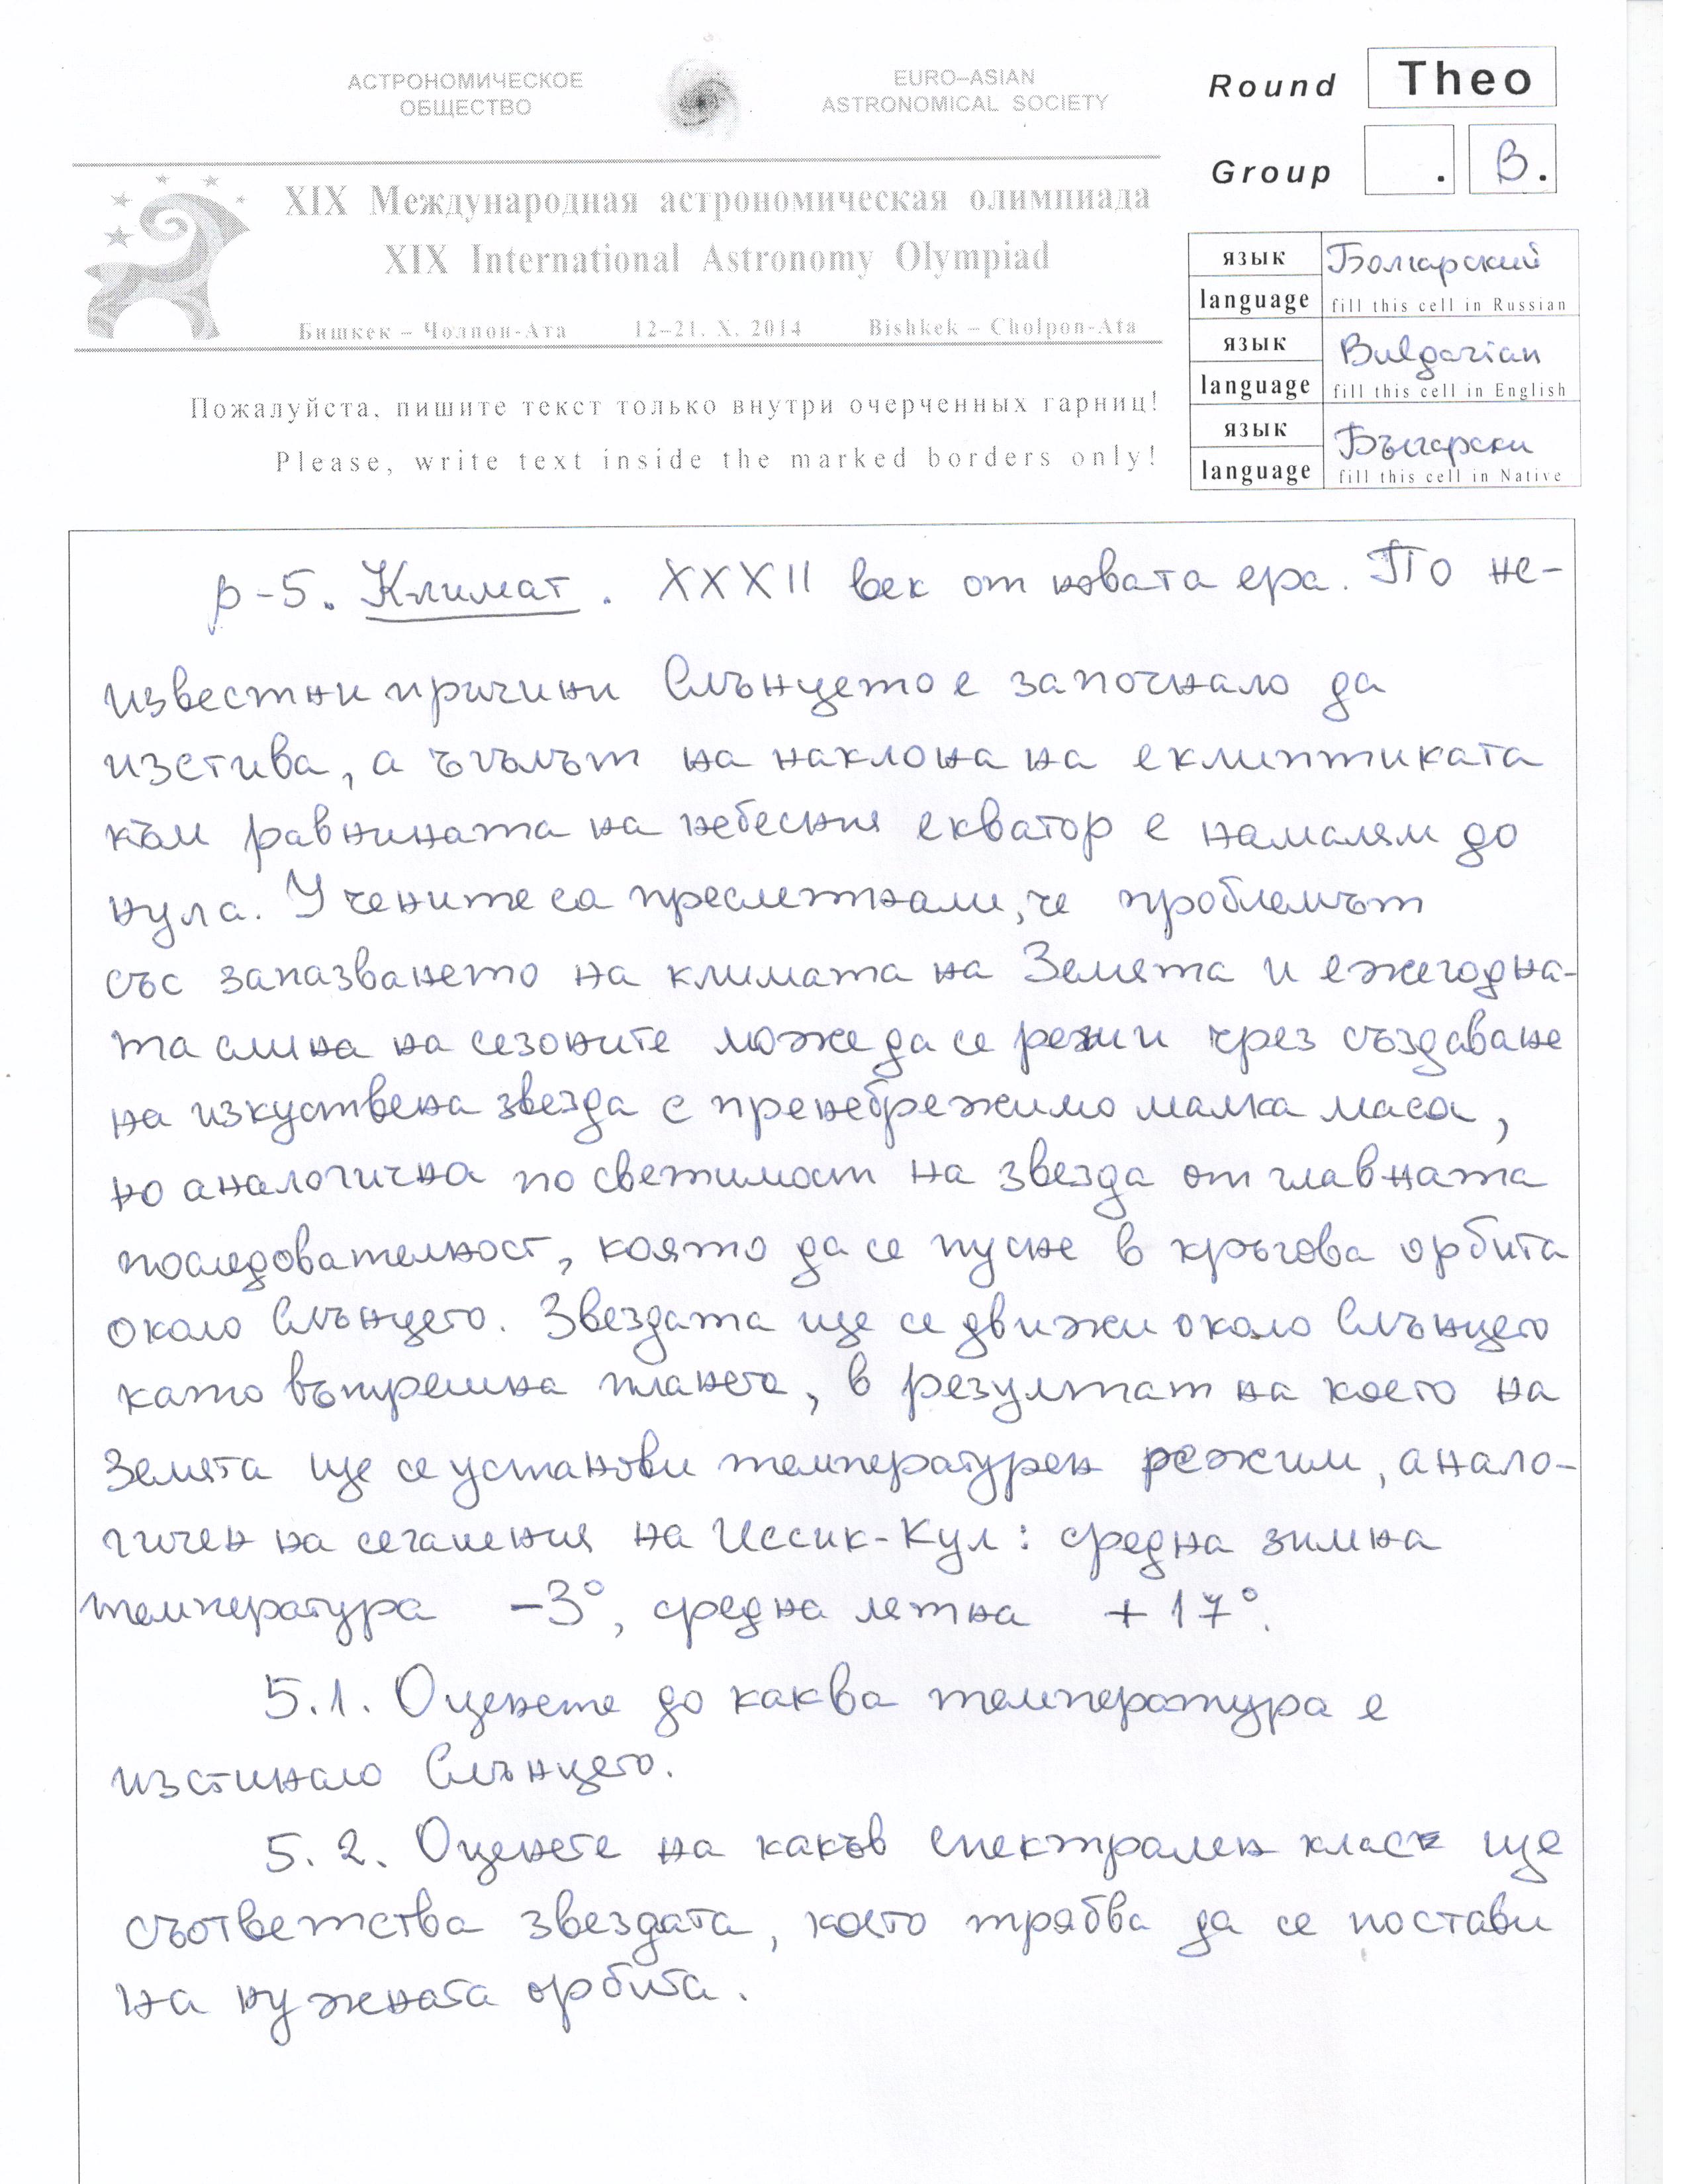 АСТРОНОМИЧЕСКОЕ
ОБЩЕСТВО
EURO–ASIAN
ASTRONOMICAL SOCIETY
Round Theo
Group . В.
XIX Международная астрономическая олимпиада
XIX International Astronomy Olympiad
Бишкек – Чолпон-Ата 12–21. X. 2014 Bishkek – Cholpon-Ata
язык Болгарский
language fill this cell in Russian
язык Bulgarian
language fill this cell in English
язык Български
language fill this cell in Native
Пожалуйста, пишите текст только внутри очерченных гарниц!
Please, write text inside the marked borders only!
β-5. Климат. XXXII век от новата ера. По не-
известни причини Слънцето е започнало да
изстива, а ъгълът на наклона на еклиптиката
към равнината на небесния екватор е намалял до
нула. Учените са пресметнали, че проблемът
със запазването на климата на Земята и ежегодна-
та смяна на сезоните може да се реши чрез създаване
на изкуствена звезда с пренебрежимо малка маса,
но аналогична по светимост на звезда от главната
последователност, която да се пусне в кръгова орбита
около Слънцето. Звездата ще се движи около Слънцето
като вътрешна планета, в резултат на което на
Земята ще се установи температурен режим, анало-
гичен на сегашния на Иссик-Кул: средна зимна
температура -3°, средна лятна +17°.
5.1. Оценете до каква температура е
изстинало Слънцето.
5.2. Оценете на какъв спектрален клас ще
съответства звездата, която трябва да се постави
на нужната орбита.